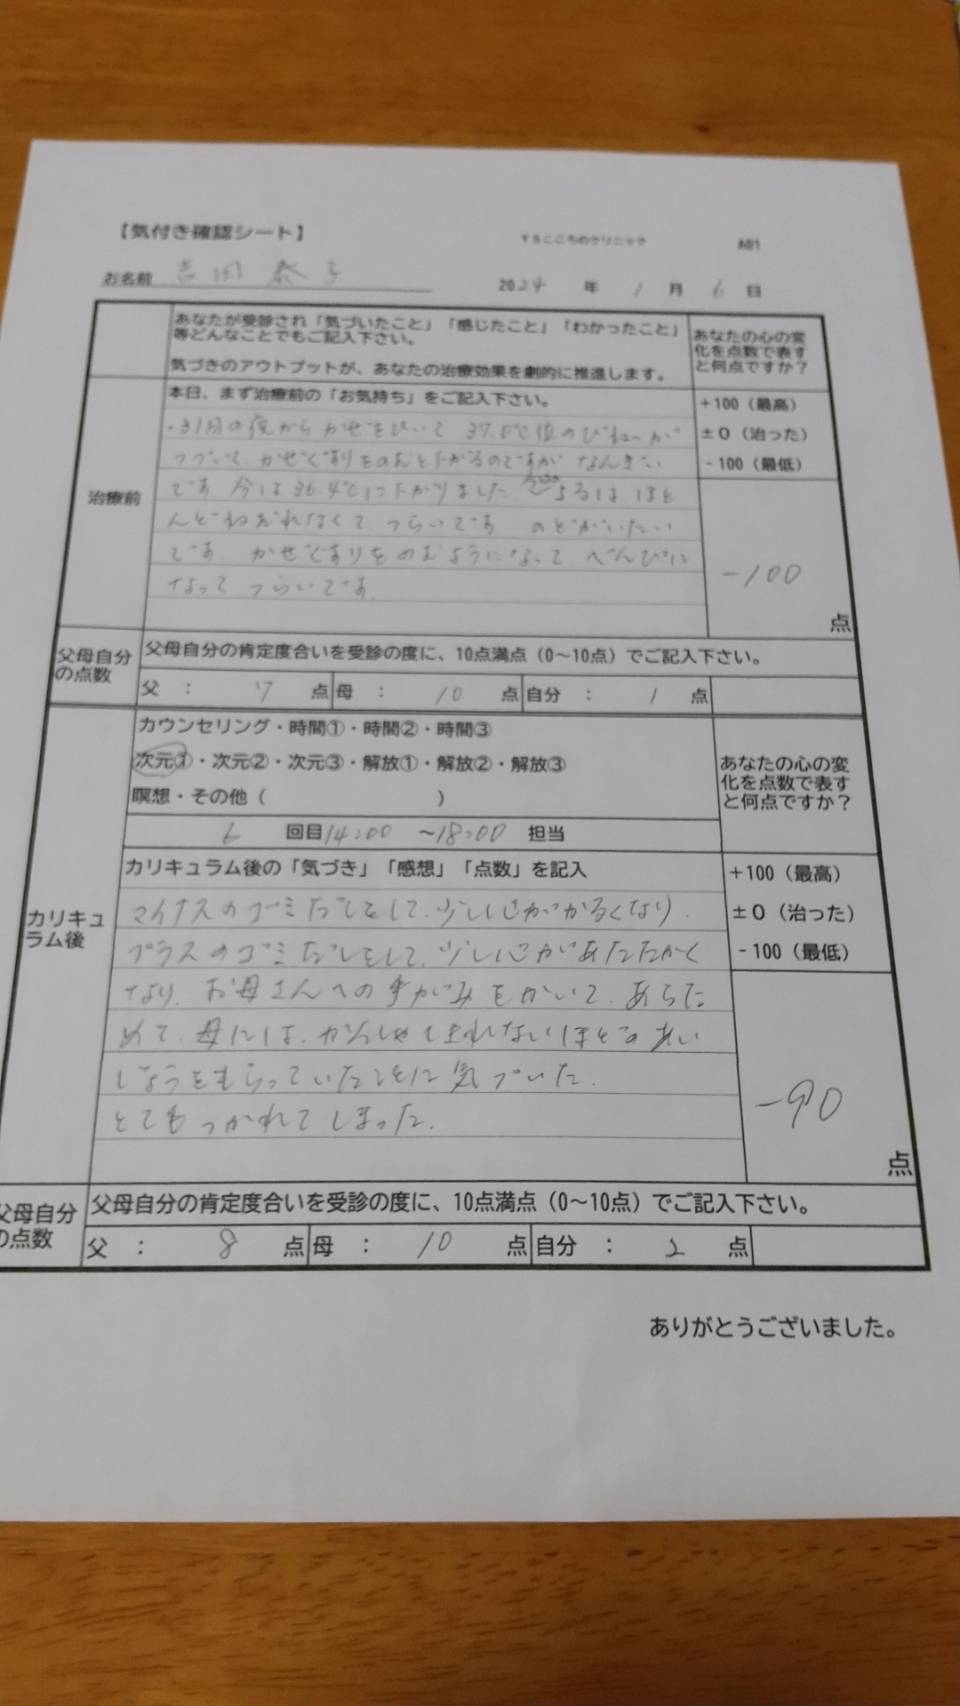 【気付き確認シート】 YSこころのクリニック A01
お名前 吉田 泰子 2024 年 1 月 6 日
あなたが受診され「気づいたこと」「感じたこと」「わかったこと」
等どんなことでもご記入下さい。
気づきのアウトプットが、あなたの治療効果を劇的に推進します。
あなたの心の変
化を点数で表す
と何点ですか？
治療前
本日、まず治療前の「お気持ち」をご記入下さい。
の夜からかぜをひいて 37.0℃位のびねつが
つづいて、かぜぐすりをのむと下がるのですが なんぎい
です 今は36.4℃に下がりました よるは ほと
んどねむれなくて つらいです のどがいたい
です かぜぐすりをのむようになって べんぴに
なって つらいです
+100（最高）
±0（治った）
-100（最低）
-100
点
父母自分
の点数
父母自分の肯定度合いを受診の度に、10点満点（0～10点）でご記入下さい。
父 ： 7 点 母 ： 10 点 自分 ： 1 点
カリキュ
ラム後
カウンセリング・時間①・時間②・時間③
次元①・次元②・次元③・解放①・解放②・解放③
瞑想・その他（ ）
6 回目 14:00 ～18:00 担当
あなたの心の変
化を点数で表す
と何点ですか？
カリキュラム後の「気づき」「感想」「点数」を記入
マイナスのゴミだしをして、少し心がかるくなり、
プラスのゴミだしをして、少し心があたたかく
なり、お母さんへの手がみをかいて、あらた
めて、母には、かんしゃしきれないほどのあい
じょうをもらっていたことに気づいた。
とてもつかれてしまった。
+100（最高）
±0（治った）
-100（最低）
-90
点
父母自分
の点数
父母自分の肯定度合いを受診の度に、10点満点（0～10点）でご記入下さい。
父 ： 8 点 母 ： 10 点 自分 ： 2 点
ありがとうございました。